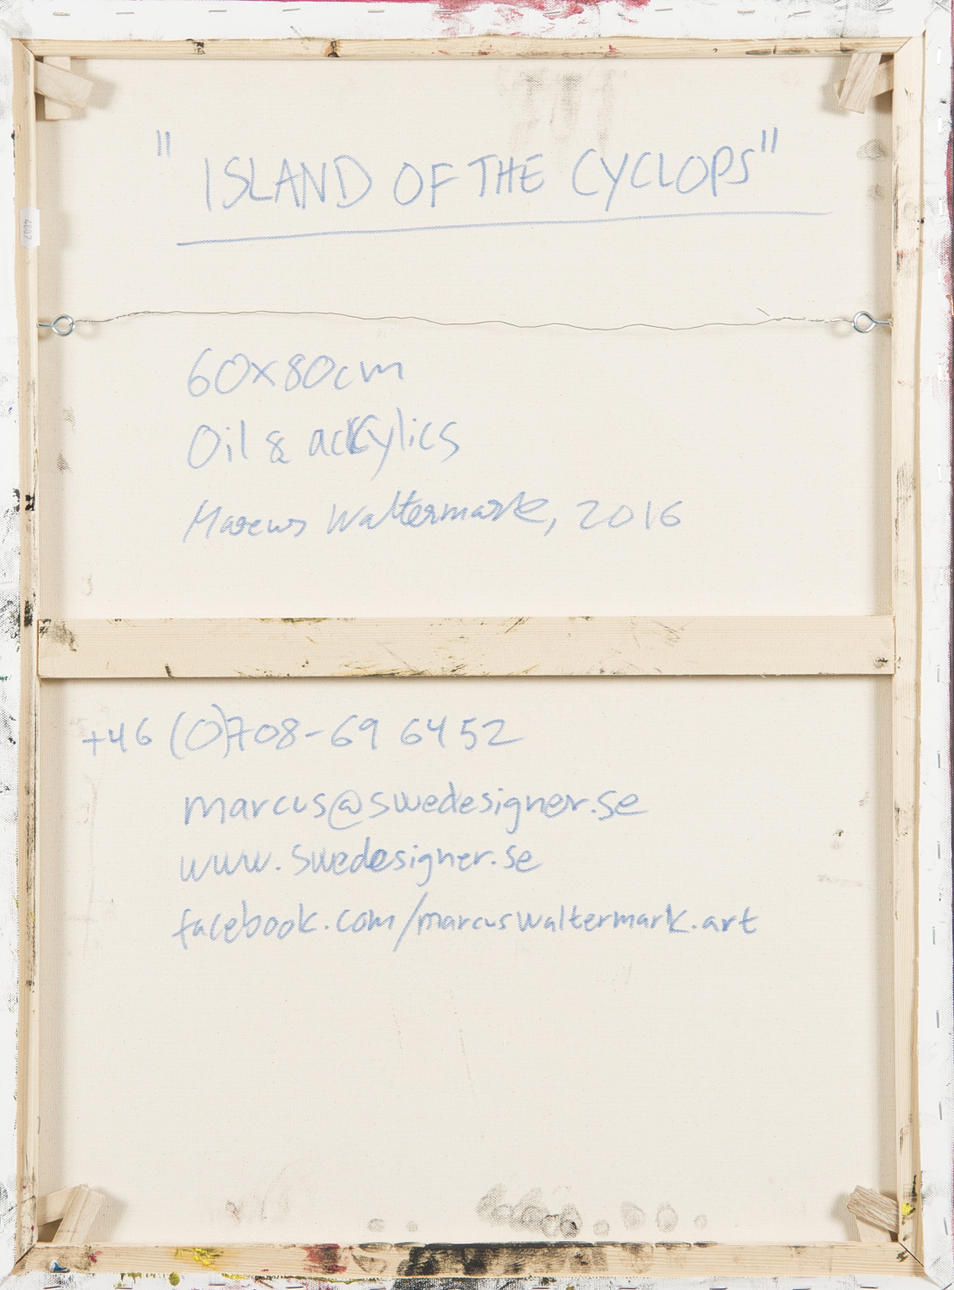 "ISLAND OF THE CYCLOPS"
60x80cm
Oil & acrylics
Marcus Waltermark, 2016
+46 (0)708-69 64 52
marcus@swedesigner.se
www.swedesigner.se
facebook.com/marcuswaltermark.art